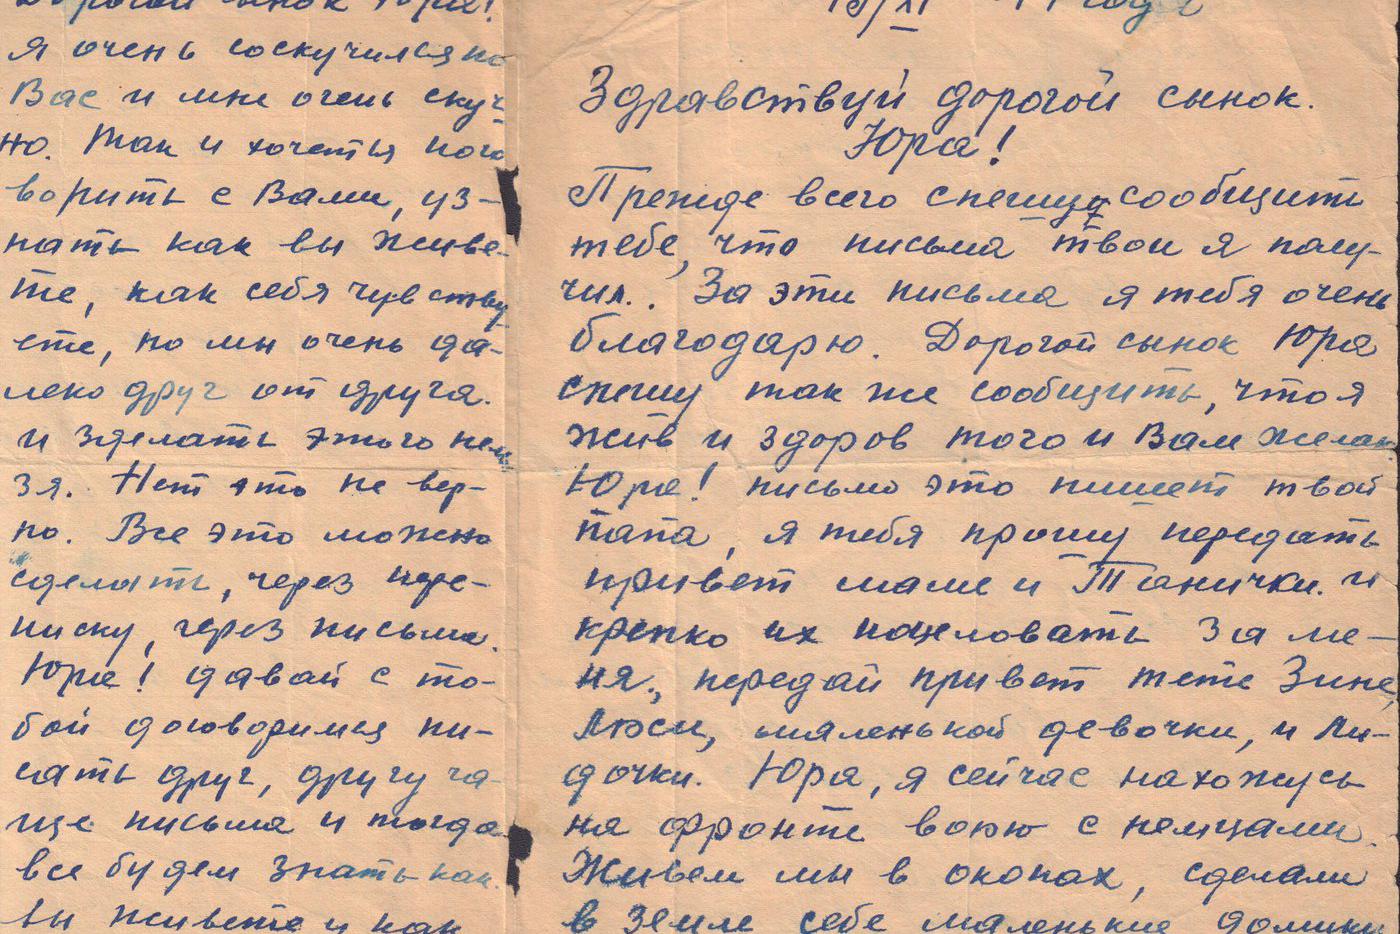 Дорогой сынок Юра!
я очень соскучился по
Вас и мне очень скуч
но. Так и хочеться пого
ворить с Вами, уз-
нать как вы живе-
те, как себя чувству
ете, но мы очень да-
леко друг от друга.
и зделать этого нель
зя. Нет это не вер-
но. Все это можно
сделать, через пере-
писку, через письма.
Юра! давай с то-
бой договоримся пи-
сать друг, другу ча-
ще письма и тогда
все будем знать как.
вы живете и как
год
Здравствуй дорогой сынок.
Юра!
Прежде всего спешу сообщить
тебе, что письма твои я полу-
чил. За эти письма я тебя очень
благодарю. Дорогой сынок Юра
спешу так же сообщить, что я
жив и здоров того и Вам желаю
Юра! письмо это пишет твой
папа, я тебя прошу передать
привет маме и Танички. и
крепко их поцеловать за ме-
ня., передай привет тете Зине,
Люси, маленькой девочки, и Ли-
дочки. Юра, я сейчас нахожусь
на фронте воюю с немцами.
Живем мы в окопах, сделали
в земле себе маленькие домики